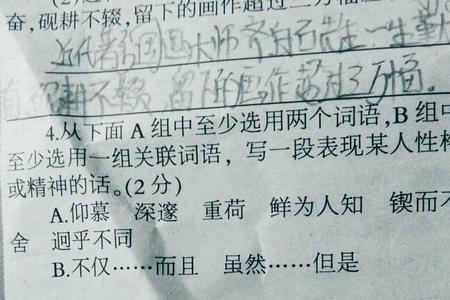 奋,砚耕不辍,留下的画作超过三万幅
近代著名国画大师齐白石先生一生勤奋
砚耕不辍 留下的画作超过3万幅。
4.从下面A组中至少选用两个词语,B组中
至少选用一组关联词语,写一段表现某人性格
或精神的话。(2分)
A.仰慕 深邃 重荷 鲜为人知 锲而不
舍 迥乎不同
B.不仅……而且 虽然……但是